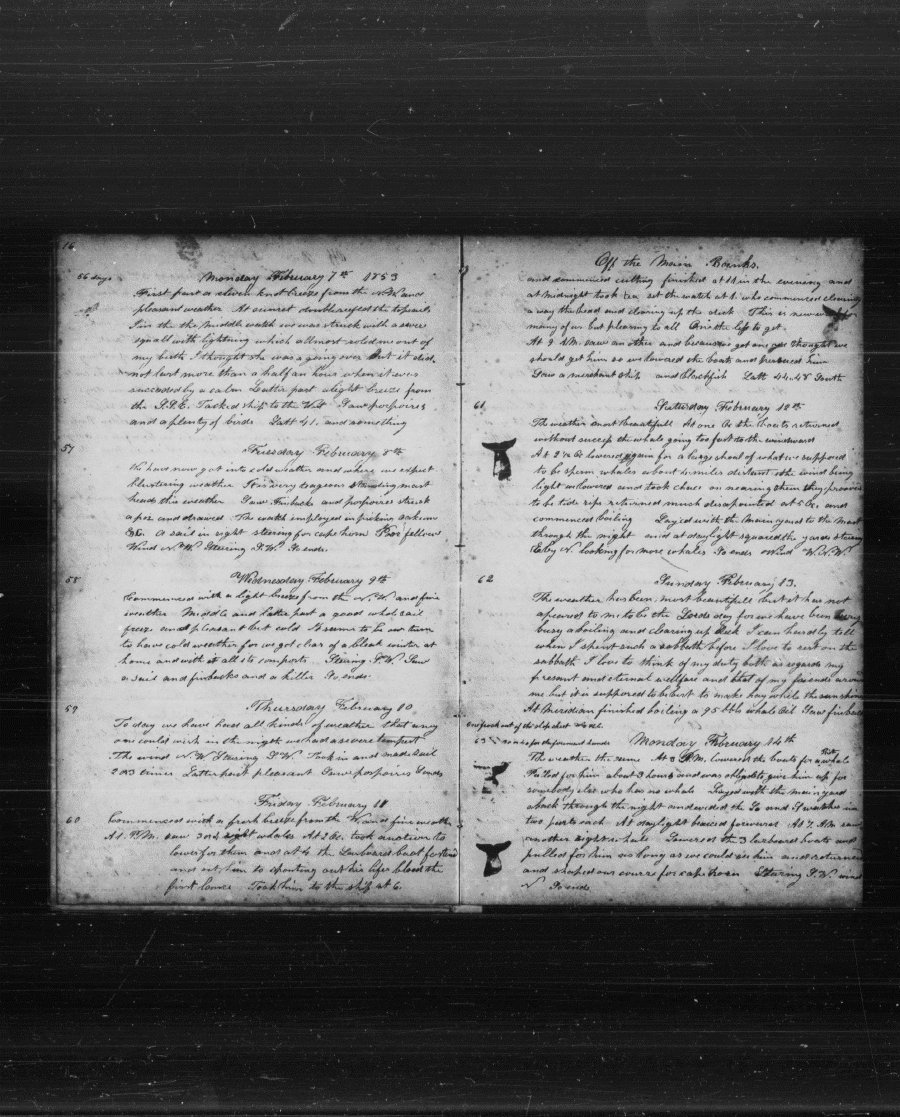 16
56 days
Monday February 7th 1853
First part a eleven knot breeze from the N.W. and
pleasant weather At sunset double reefed the topsails
In the the middle watch we was struck with a severe
squall with lightning which allmost roled me out of
my birth I thought she was a going over But it did
not last more than a half an hour when it was
succeeded by a calm Latter part a light breeze from
the S.S.E. Tacked ship to the West Saw porpoises
and a plenty of birds Latt 41. and something
57
Tuesday February 8th
We have now got into cold weather and where we expect
blustering weather It is very tedious standing mast
heads this weather Saw Finbacks and porpoises struck
a poz and drawed The watch employed in picking oakum
&c. A sail in sight steering for cape horn Poor fellow
Wind N.W. Steering S.W. So ends.
58
Wednesday February 9th
Commenced with a light breeze from the N.W. and fine
weather Middle and Latter part a good whole sail
breeze and pleasant but cold It seems to be our turn
to have cold weather for we got clear of a bleak winter at
home and with it all its comforts Stearing S.W. Saw
a sail and finbacks and a killer So ends.
59
Thursday February 10
To day we have had all kinds of weather that any
one could wish in the night we had a severe tempest
The wind N.W. Stearing S.W. Took in and made sail
2 or 3 times Latter part pleasant Saw porpoises So ends
Friday February 11
60
Commenced with a fresh breeze from the W. and fine weather
At 1. P.M. saw 3 or 4 right whales At 2 Oc. took another to
lower for them and at 4 the Larboard boat fastend
and set him to spouting out his lifes blood the
first lance Took him to the ship at 6.
Off the Main Banks.
and commenced cutting finished at 11 in the evening and
at midnight took tea set the watch at 1. who commenced clearing
a way the head and clearing up the deck This is new work for
many of us but pleasing to all One the less to get.
At 9 A.M. saw an other and because got one we thought we
should get him so we lowered the boats and persued him
Saw a merchant ship and blackfish Latt 44.48 South
61
Saturday February 12th
The weather most beautifull At one Oc the boats returned
without success the whale going too fast to the windward
At 2 ½ Oc lowered again for a large shoal of what we supposed
to be sperm whales about 4 miles distant the wind being
light we lowered and took chase on nearing them they proved
to be tide rips returned much disapointed at 5 Oc. and
commenced boiling Layed with the Main yard to the Mast
through the night and at daylight squared the yards steering
E by N. looking for more whales So ends Wind W.N.W.
62
Sunday February 13.
The weather has been most beautifull but it has not
apeared to me to be the Lords day for we have been
busy a boiling and clearing up deck I can hardly tell
when I spent such a sabbath before I love to rest on the
sabbath I love to think of my duty both as regards my
present and eternal wellfare and that of my friends around
me but it is supposed to be best to make hay while the sun shines
At Meridian finished boiling a 95 bbls whale Oil Saw finbacks
63
Monday February 14th
The weather the same At 2 P.M. lowered the boats for a Right whale
Pulled for him about 3 hours and was obliged to give him up for
somebody else who has no whale Layed with the main yard
aback through the night and evided the So and S watches in
two parts each At daylight braced forward At 7 A.M saw
another right whale Lowered the 3 larboard boats and
pulled for him as long as we could see him and returned
and shaped our course for cape horn Stearing S.W. wind
N. So ends